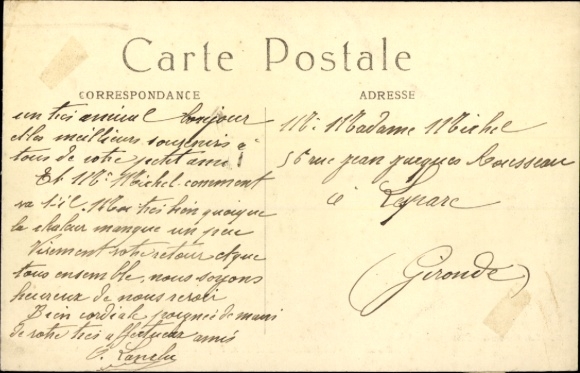 Carte Postale
CORRESPONDANCE
un très amical bonjour
et les meilleurs souvenirs à
tous de votre petit ami
Et Mr Michel comment
va t'il. Moi très bien quoique
la chaleur manque un peu
Vivement votre retour et que
tous ensemble, nous soyons
heureux de nous revoir
Bien cordiale poignée de main
de votre très affectueux amis
ADRESSE
Mr. Madame Michel
56 rue jean jacques Rousseau
à Lesparre
(Gironde)